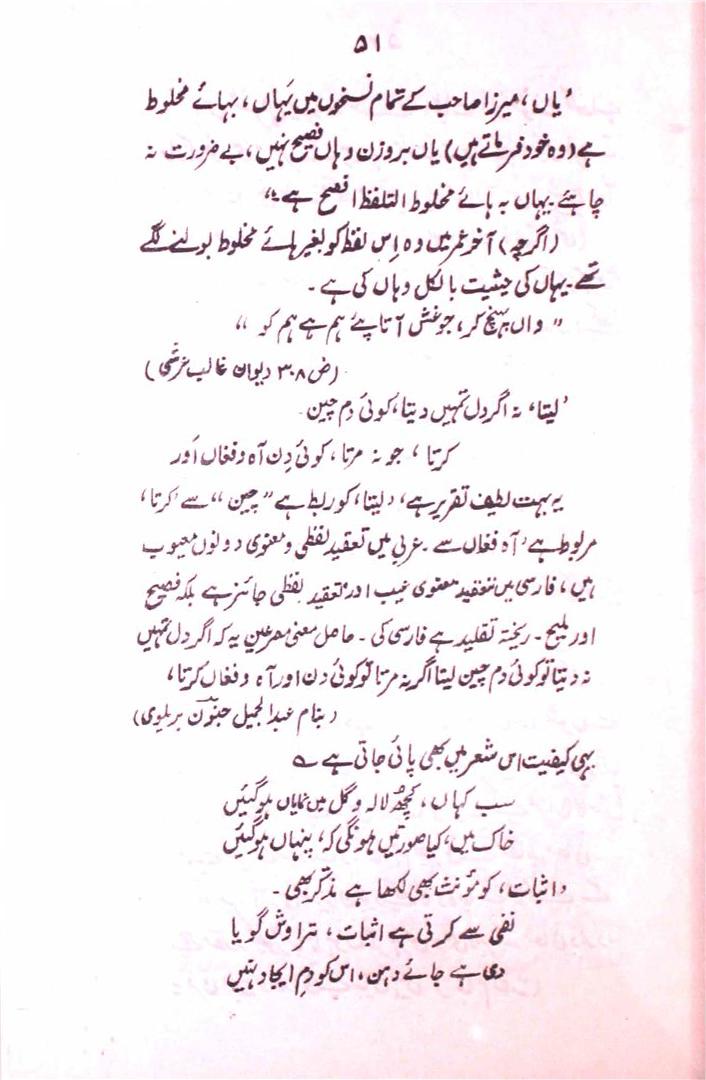 ۵۱
'یاں، میرزا صاحب کے تمام نسخوں میں یَہاں، بہائے مخلوط
ہے (وہ خود فرماتے ہیں) یاں بروزن وہاں فصیح نہیں، بے ضرورت نہ
چاہئے۔ یہاں بہ ہائے مخلوط التلفظ افصح ہے۔"
(اگرچہ) آخر عمر میں وہ اِس لفظ کو بغیر ہائے مخلوط بولنے لگے
تھے۔ یہاں کی حیثیت بالکل وہاں کی ہے۔
"واں پہنچ کر، جو غش آتا پئے ہم ہے ہم کو"
(ض ۳۰۸ دیوان غالب عرشی)
'لیتا، نہ اگر دل تمہیں دیتا، کوئی دم چین
کرتا، جو نہ مرتا، کوئی دِن آہ و فغاں اَور
یہ بہت لطیف تقریر ہے، 'لیتا، کو ربط ہے "چین" سے 'کرتا،
مربوط ہے 'آہ فغاں سے۔ عربی میں تعقید لفظی و معنوی دونوں معیوب
ہیں، فارسی میں تعقید معنوی عیب اور تعقید لفظی جائز ہے بلکہ فصیح
اور ملیح۔ ریختہ تقلید ہے فارسی کی۔ حاصل معنی مصرعین یہ کہ اگر دل تمہیں
نہ دیتا تو کوئی دم چین لیتا اگر نہ مرتا تو کوئی دن اور آہ و فغاں کرتا،
(بنام عبدالجمیل جنون بریلوی)
یہی کیفیت اس شعر میں بھی پائی جاتی ہے ؎
سب کہاں، کچھ لالہ و گل میں نمایاں ہو گئیں
خاک میں، کیا صورتیں ہونگی کہ، پنہاں ہو گئیں
'اثبات، کو مؤنث بھی لکھا ہے مذکر بھی۔
نفی سے کرتی ہے اثبات، تراوش گویا
دی ہے جائے دہن، اس کو دمِ ایجاد نہیں